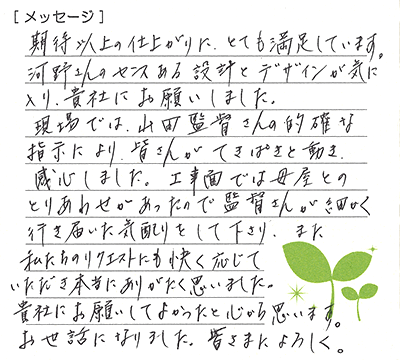 [メッセージ]
期待以上の仕上がりに、とても満足しています。
河野さんのセンスある設計とデザインが気に
入り、貴社にお願いしました。
現場では、山田監督さんの的確な
指示により、皆さんがてきぱきと動き、
感心しました。工事面では母屋との
とりあわせがあったので監督さんが細かく
行き届いた気配りをして下さり、また
私たちのリクエストにも快く応じて
いただき本当にありがたく思いました。
貴社にお願いしてよかったと心から思います。
お世話になりました。皆さまによろしく。